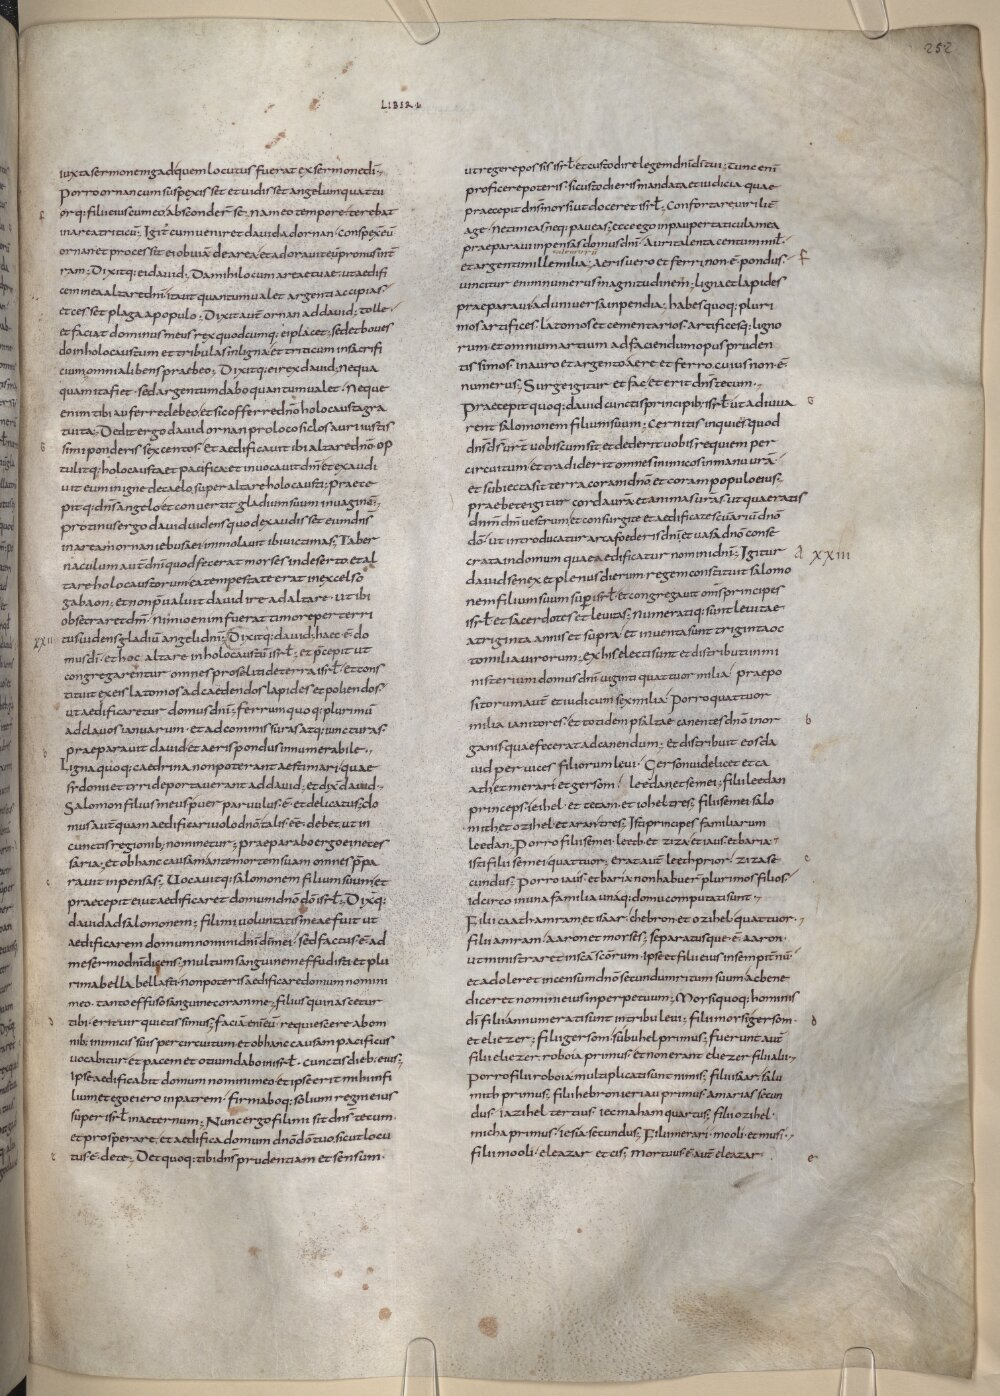 252
LIBER I
iuxta sermonem gad quem locutus fuerat ex sermone dñi.,
Porro ornan cum suspexisset et uidisset angelum quattu
orq; filii eius cum eo abscondert se. nam eo tempore terebat
in area triticum; Igit cum ueniret dauid ad ornan conspexit eũ
ornan et processit ei obuiã de area et adorauit eũ pronus in ter
ram; Dixitq; ei dauid; Da mihi locum areae tuae ut aedifi
cem in ea altare dño ita ut quantum ualet argenti accipias
et cesset plaga a populo; Dixit aut ornan ad dauid; tolle
et faciat dominus meus rex quodcumq; ei placet; sed et boues
do in holocaustum et tribulas in ligna et triticum in sacrifi
cium; omnia libens praebeo; Dixitq; ei rex dauid; nequa
quam ita fiet sed argentum dabo quantum ualet. Neque
enim tibi auferre debeo et sic offerre dño holocausta gra
tuita; Dedit ergo dauid ornan pro loco siclos auri iustis
simi ponderis sexcentos. Et aedificauit ibi altare dño. op
tulitq; holocausta et pacifica et inuocauit dñm et exaudi
uit eum in igne de caelo super altare holocausti; Praece
pitq; dñs angelo et conuertit gladium suum in uaginã;
protinus ergo dauid uidens quod exaudisset eum dñs
in area ornan iebusaei immolauit ibi uictimas; Taber
naculum aut dñi quod fecerat moises in deserto et al
tare holocaustorum ea tempestate erat in excelso
gabaon; et non p̃ualuit dauid ire ad altare ut ibi
obsecraret dm; Nimio enim fuerat timore perterri
xxii tus uidens gladiũ angeli dñi; Dixitq; dauid; haec ẽ do
mus di et hoc altare in holocaustũ isrł; et p̃cepit ut
congregarentur omnes proseliti de terra isrł et cons
tituit ex eis latomos ad caedendos lapides et poliendos
ut aedificaretur domus dñi; ferrum quoq; plurimũ
ad clauos ianuarum et ad commissuras atq; iuncturas
praeparauit dauid et aeris pondus innumerabile.,
b Ligna quoq; caedrina non poterant aestimari quae
sydonii et tyrii deportauerant ad dauid; et dix dauid.,
Salomon filius meus puer paruulus ẽ et delicatus; do
mus aut quam aedificari uolo dño talis eẽ debet ut in
cunctis regionib; nominetur; praeparabo ergo ei neces
saria; et ob hanc causam ante mortem suam omnes p̃pa
c rauit inpensas; Uocauitq; salomonem filium suum et
praecepit ei ut aedificaret domum dño dõ isrł; Dixq;
dauid ad salomonem; fili mi uoluntatis meae fuit ut
aedificarem domum nomini dñi di mei sed factus ẽ ad
me sermo dñi dicens; multum sanguinem effudisti et plu
rima bella bellasti non poteris aedificare domum nomini
meo tanto effuso sanguine coram me; filius qui nascetur
d tibi erit uir quietissimus; faciã eni eũ requiescere ab om
nib; inimicis suis per circuitum et ob hanc causam pacificus
uocabitur et pacem et otium dabo in isrł cunctis dieb; eius;
Ipse aedificabit domum nomini meo et ipse erit mihi in fi
lium et ego ei ero in patrem firmaboq; solium regni eius
super isrł in aeternum; Nunc ergo fili mi sit dñs tecum
et prosperare et aedifica domum dño dõ tuo sicut locu
e tus ẽ de te; Det quoq; tibi dñs prudentiam et sensum
ut regere possis isrł et custodire legem dñi di tui; tunc eni
proficere poteris si custodieris mandata et iudicia quae
praecepit dñs mosi ut doceret isrł; Confortare uirilit
age ne timeas neq; paueas; ecce ego in paupertaticula mea
praeparaui inpensas domus dñi auri talenta centum mił
et argenti mille milia aeris uero et ferri non ẽ pondus f
uincitur enim numerus magnitudinem; ligna et lapides
praeparaui ad uniuersa inpendia; habes quoq; pluri
mos artifices latomos et cementarios artificesq; ligno
rum et omnium artium ad faciendum opus pruden
tissimos in auro et argento aere et ferro cuius non ẽ
numerus; Surge igitur et fac et erit dñs tecum.,
Praecepit quoq; dauid cunctis principib; isrł ut adiuua G
rent salomonem filium suum; Cernitis inquiens quod
dñs ds ur uobiscum sit et dederit uobis requiem per
circuitum et tradiderit omnes inimicos in manu urã
et subiecta sit terra coram dño et coram populo eius;
praebete igitur corda urã et animas urãs ut quaeratis
dnm dm uestrum et consurgite et aedificate scuariũ dño
dõ ut introducatur arca foederis dñi et uasa dño conse
crata in domum quae aedificatur nomini dñi; Igitur A xxiii
dauid senex et plenus dierum regem constituit salomo
nem filium suum sup isrł et congregauit om̃s principes
isrł et sacerdotes et leuitas; Numeratiq; sunt leuitae
a triginta annis et supra et inuenta sunt triginta oc
to milia uirorum; ex his electi sunt et distributi in mi
nisterium domus dñi uiginti quattuor milia praepo
sitorum aut et iudicum sex milia Porro quattuor
milia ianitores et totidem psaltae canentes dño in or b
ganis quae fecerat ad canendum; et distribuit eos da
uid per uices filiorum leui Gerson uidelicet et ca
ath et merari et gersom leedan et semei; filii leedan
princeps ieihel et zetan et iohel tres; filii semei salo
mith et ozihel et aran tres; Isti principes familiarum
leedan; Porro filii semei leeth et ziza et iaus et baria
isti filii semei quattuor; erat aut leeth prior ziza se c
cundus; Porro iaus et baria non habuer plurimos filios
idcirco in una familia unaq; domu computati sunt.,
Filii caath amram et isaar chebron et ozihel quattuor.,
filii amram aaron et moises; separatusque ẽ aaron
ut ministraret in sca scorum ipse et filii eius in sempitnũ
et adoleret incensum dño secundum ritum suum ac bene
diceret nomini eius in perpetuum; Mosi quoq; hominis
di filii annumerati sunt in tribu leui; filii mosi gersom d
et eliezer; filii gersom subuhel primus; fuerunt aut
filii eliezer roboia primus et non erant eliezer filii alii.,
Porro filii roboia multiplicati sunt nimis; filii isaar salu
mith primus filii hebron ieriau primus amarias secun
dus iazihel tertius iecmaham quartus; filii ozihel
micha primus iesia secundus; Filii merari mooli et musi.,
filii mooli eleazar et cis; mortuus ẽ aut eleazar e